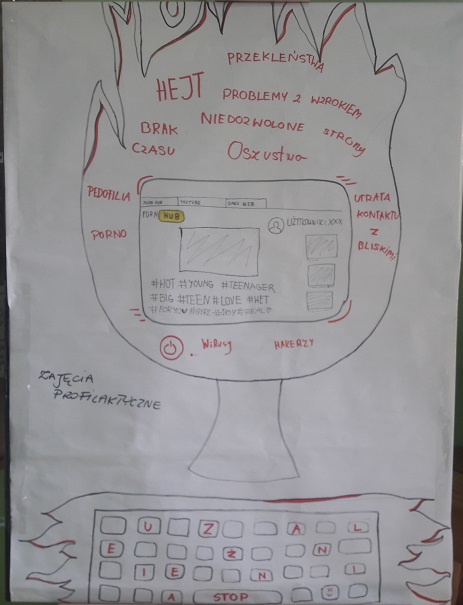 PRZEKLEŃSTWA
HEJT
PROBLEMY Z WZROKIEM
BRAK CZASU
NIEDOZWOLONE STRONY
Oszustwa
PEDOFILIA
PORNO
UTRATA
KONTAKTU
Z
BLISKIMI
YOUTUBE
DARK WEB
PORN HUB
UŻYTKOWNIK: XXX
#HOT #YOUNG #TEENAGER
#BIG #TEEN #LOVE #HET
WiRUSy
HAKERZY
ZAJĘCIA
PROFILAKTYCZNE
U Z A L
E Ż N
I E N I
A STOP